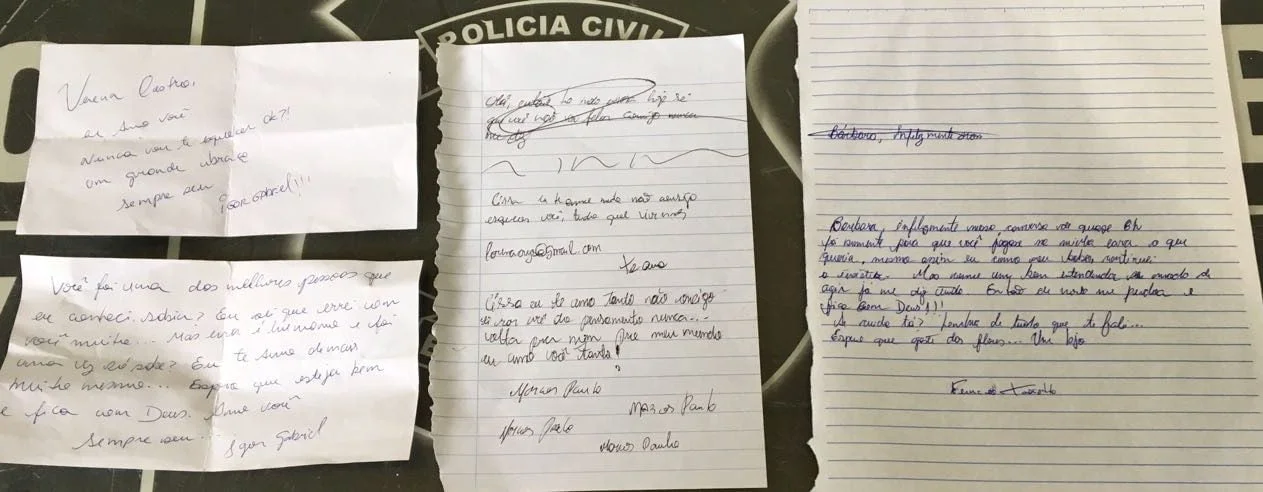 POLICIA CIVIL
Verena Castro,
eu amo você
Nunca vou te esquecer ok?!
um grande abraço
sempre seu
Igor Gabriel!!!
Você foi uma das melhores pessoas que
eu conheci. Sabia? Eu sei que errei com
você muito... mas errar é humano e foi
uma vez só sabe? Eu te amo demais
muito mesmo... Espero que esteja bem
e fica com Deus. Amo você
Sempre seu...
Igor Gabriel
hoje se
que você não comigo nunca
me diz
Cissa não consigo
esquecer você, tudo que vivemos
@gmail.com
te amo
Cissa eu te amo tanto não consigo
tirar você do pensamento nunca...
volta pra mim meu mundo
eu amo você tanto!
Marcos Paulo
Marcos Paulo
Marcos Paulo
Marcos Paulo
Bárbara, Infelizmente
Barbara, infelizmente nossa conversa de quase 8h
foi somente para que você jogasse na minha cara o que
queria, mesmo assim eu como sem continuei
a Mas bem seu modo de
agir já me diz tudo. Então de novo me perdoa e
fica bem Deus!!!
Se cuida tá? Lembre de tudo que te falei...
Espero que goste das flores... Um bjo